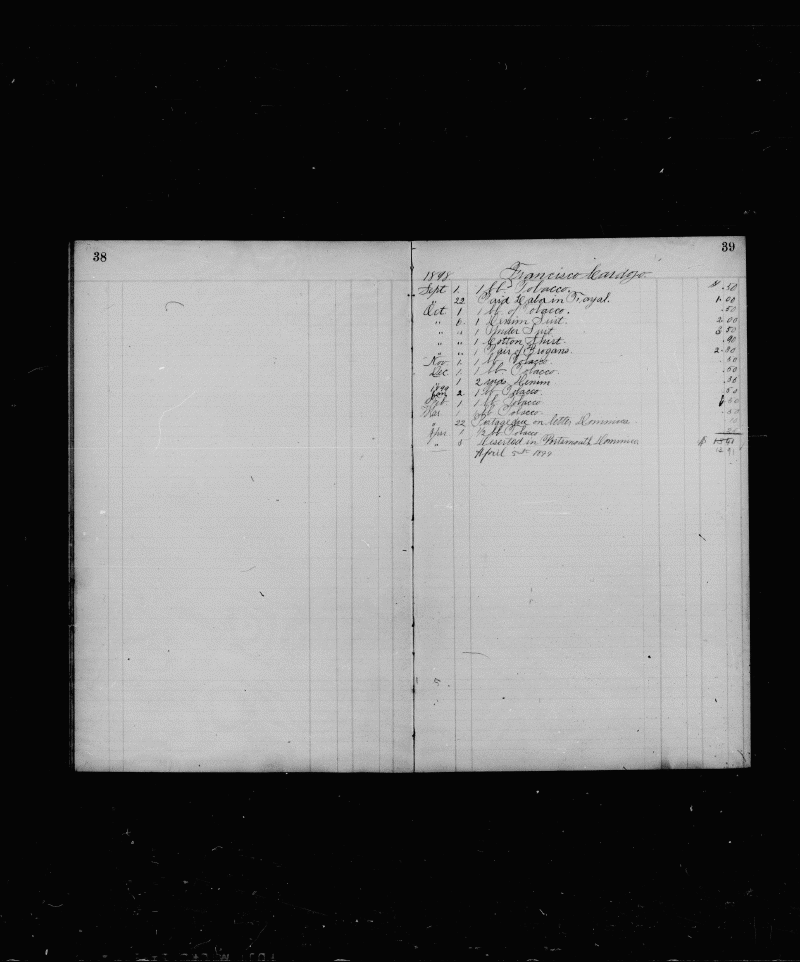 38
39
1898 Francisco Cardozo.
Sept 1. 1 lb. Tobacco. $ .50
" 22 Paid in Fayal. 1.00
Oct 1 1 lb. of Tobacco. .50
" 6. 1 Denim Suit. 2.00
" " 1 Under Suit 3.50
" " 1 Cotton Shirt. .90
" " 1 Pair of Brogans.
Nov. 1. 1 lb. Tobacco. .50
Dec 1. 1 lb Tobacco. .50
" 1 2 yds. Denim
1899
Jan 2 1 lb. Tobacco. .50
Feb. 1 1 lb Tobacco .50
Mar 1 1 lb Tobacco .50
" 22 Postage on letter Dominica
Apr 1 1/2 lb. Tobacco
" 5 Deserted in Portsmouth Dominica $
April 5th 1899